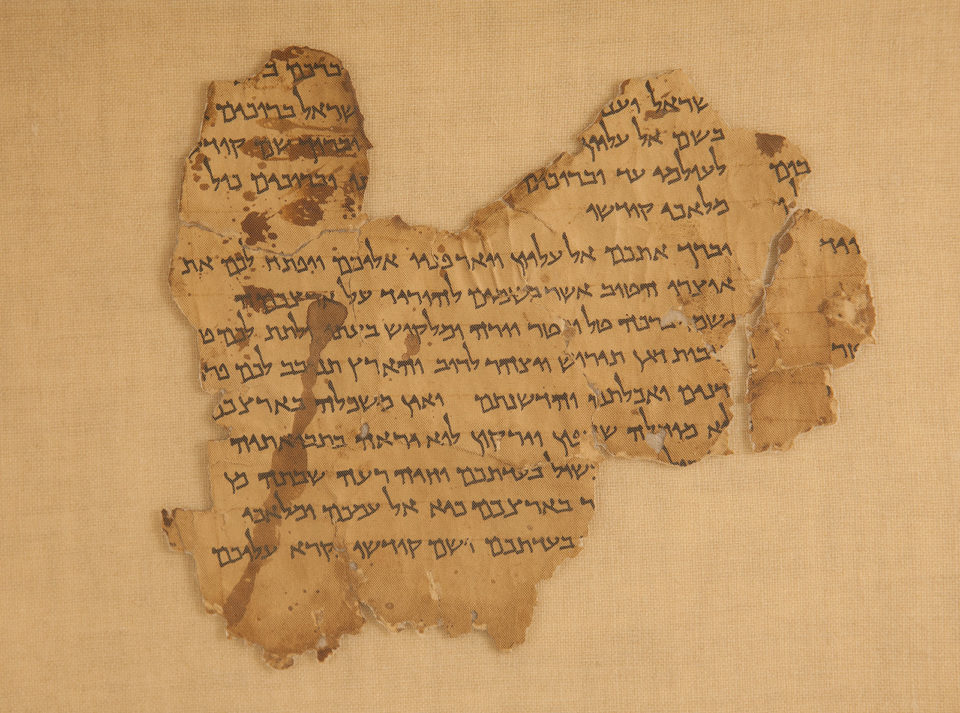 ברכם ב
שראל וענ שראל ברוכים
בשם אל עליון וברוך שם קודש
לעולמי עד וברוכים וברוכים כול
מלאכי קודשו
יברך אתכם אל עליון ויאר פניו אליכם ויפתח לכם את
אוצרו הטוב אשר בשמים להוריד על ארצכם
גשמי ברכה טל ומטר יורה ומלקוש בעתו ולתת לכם
בות דגן תירוש ויצהר לרוב והארץ תנובב לכם פרי
דנים ואכלתם והדשנתם ואין משכלה בארצכם
לא מוחלה וירקון לוא יראה בתבואתיה
שול בעדתכם וחיה רעה שבתה מן
ר בארצכם כיא אל עמכם ומלאכי
בעדתכם ושם קודשו נקרא עליכם